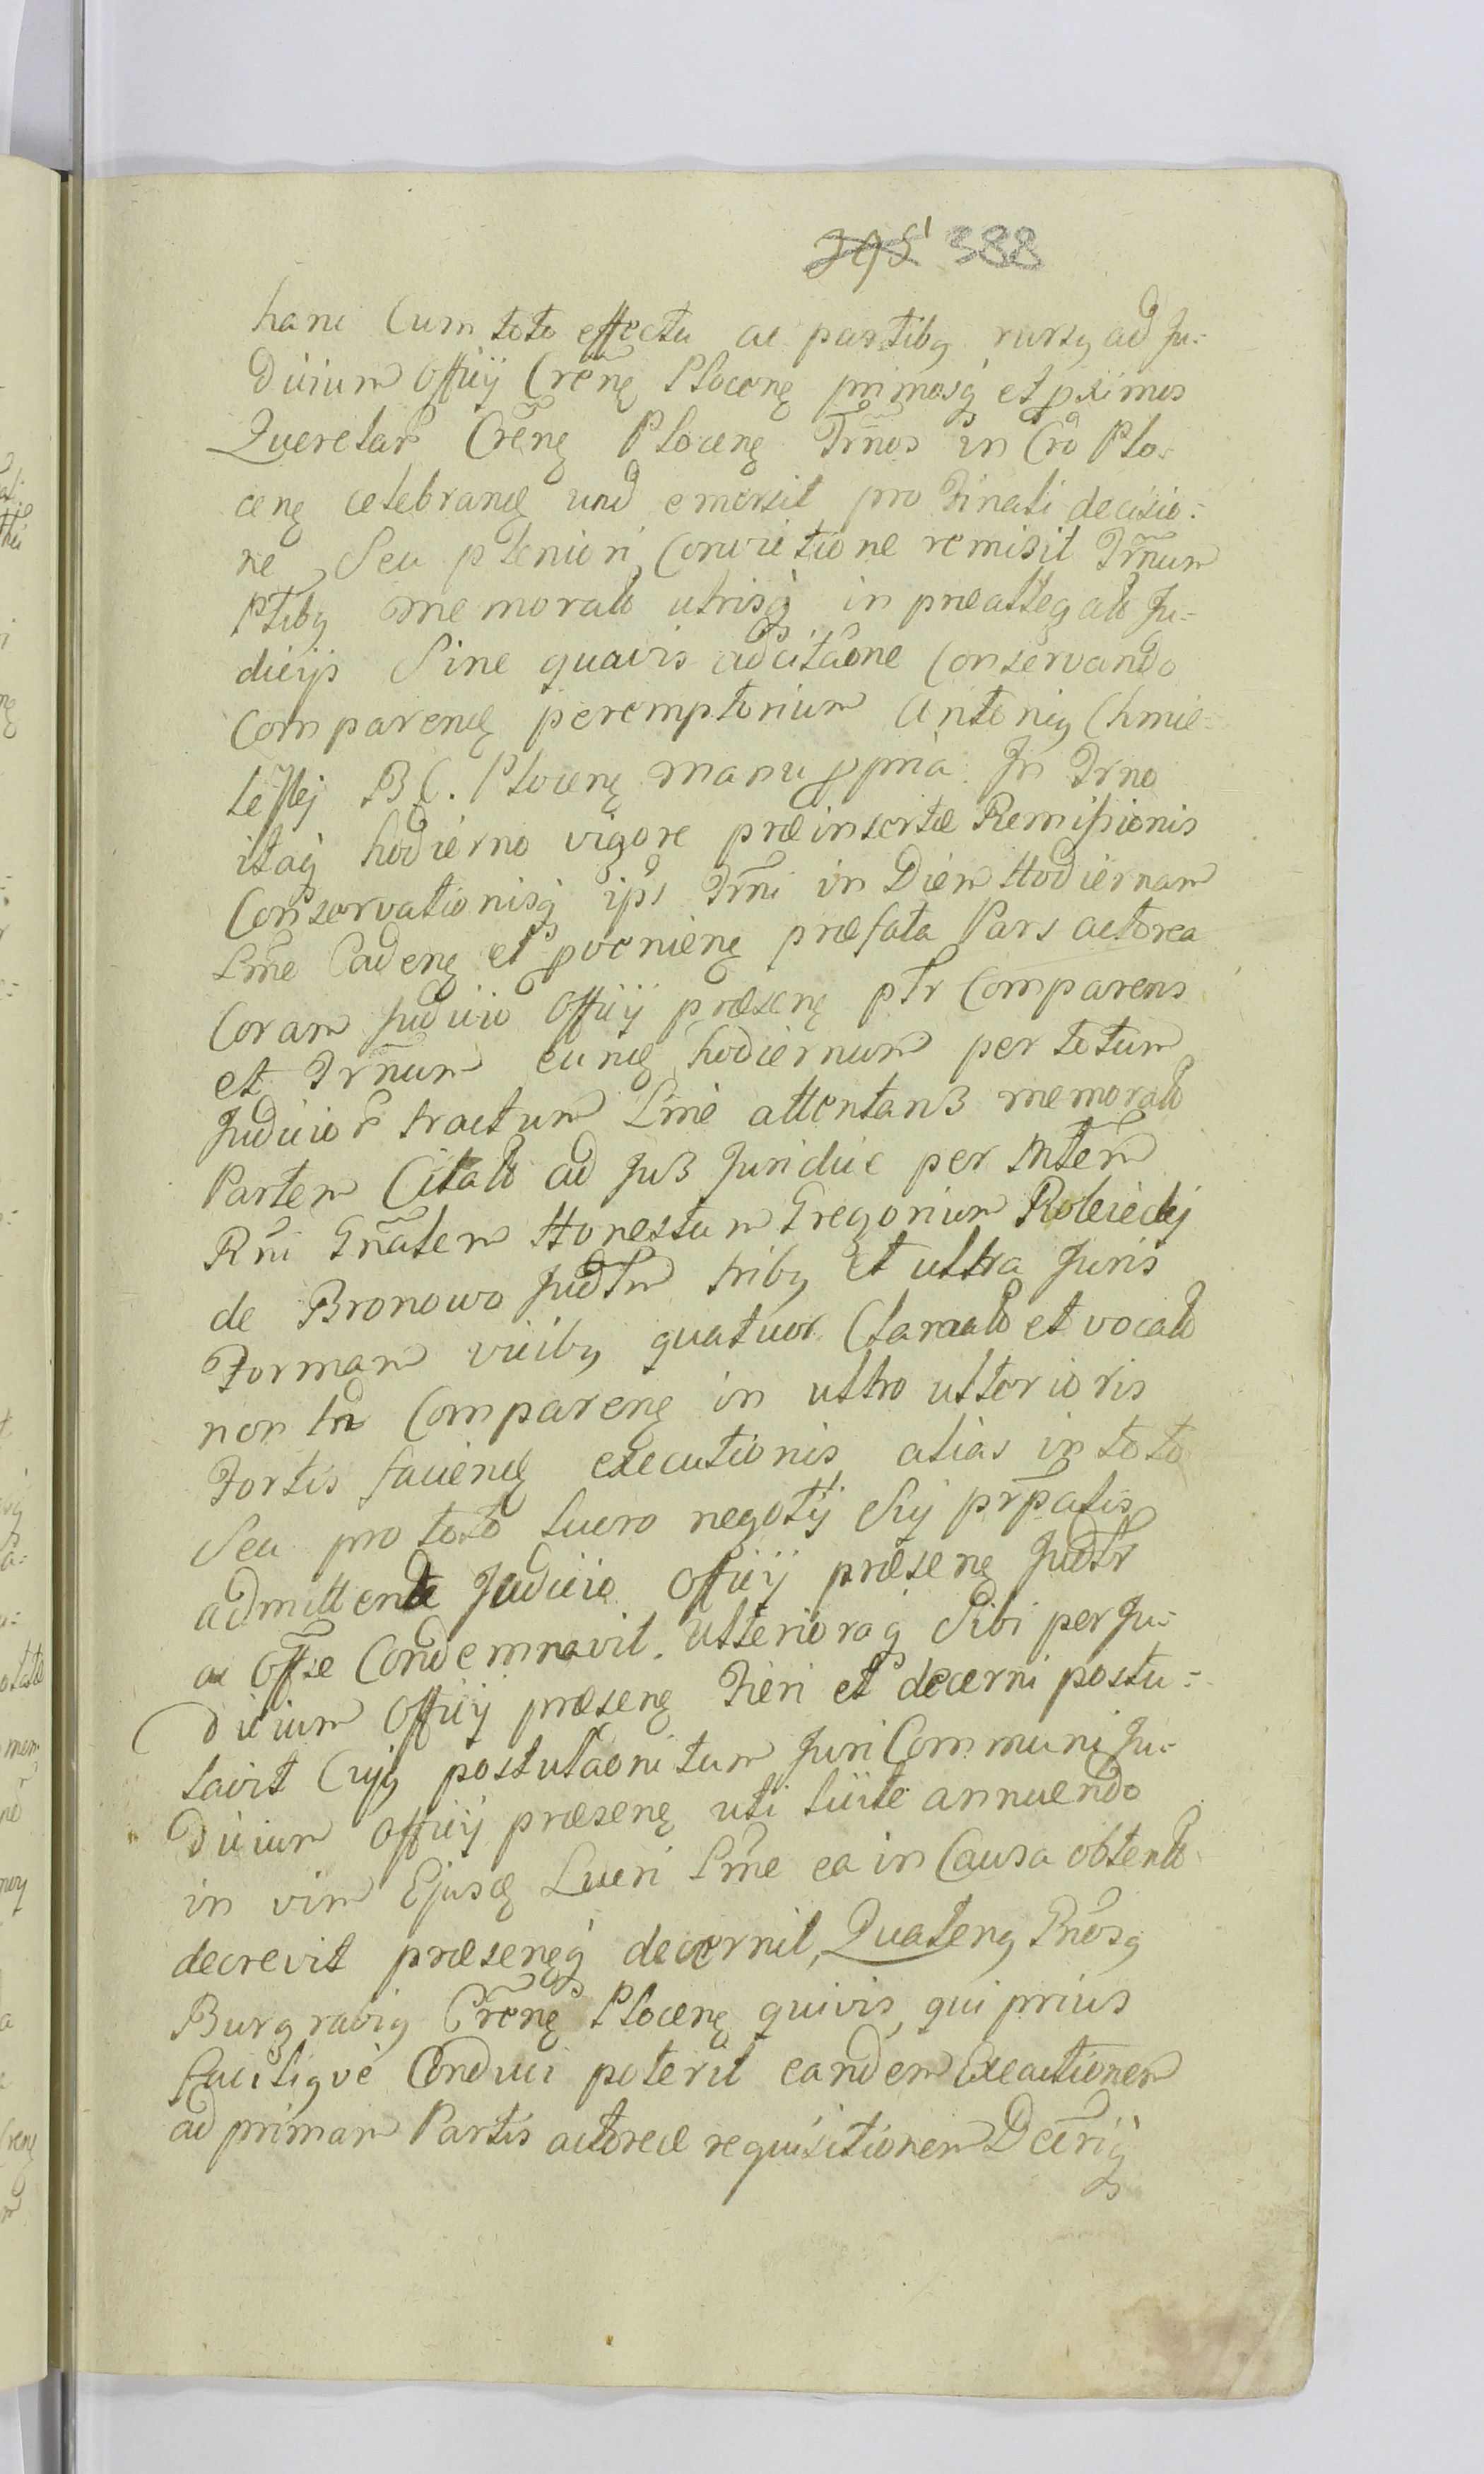 395 388
hanc Cum toto effectu ac partibꝫ rursꝫ ad Ju-
dicium Officij Cr̃eñę Plocenę primosq́ et pximos
Querelar̃ Cr̃eñę Plocenę Tr̃mños in Cr̃o Plo-
cenę celebrandę und̃ emersit, pro Finali decisio-
ne, Seu pleniori, Convictione remisit Tr̃mnum
Ptibꝫ memorato utrisq́ in præallegato Ju-
dicijs Sine quavis adcitãone Conservando
Comparendę peremptorium Antoniꝫ Chmie-
leſkj B C. Plocenę manu ppria. In Tr̃no
itaq́ hodierno vigore præinsertæ Remiſsionis
Conservationisq́ ips̃ Tr̃mni in Diem Hodiernam
Lr̃me Cadenę et pvenienę præfata Pars actorea
Coram Judicio Officij præsenę ptr Comparens
et Tr̃mnum eundę hodiernum per totum
Judicior̃ tractum Lr̃mè attentans memorato
Partem Citato ad Jus Juridicè per Mtem
Rñi Gñalem Honestum Gregorium Rolecickj
de Bronowo Judlr tribꝫ et ultra Juris
Formam vicibꝫ quatuor Clamato et vocato
non tñ Comparenę in ultro ulterioris
Fortis faciendę executionis, alias in toto
Seu pro toto lucro negotij Sĩj pr̃palis
admittendę Judicio Officij præsenę Judlr
ac Offse Condemnavit. Ulterioraq́ Sibi per Ju-
dicium Officij præsenę Fieri et decerni postu-
lavit Cujꝫ postulaoni tum Juri Communi Ju-
dicium Officij præsenę uti licite annuendo
in vim Ejusdę Lucri Lr̃me ea in Causa obtento
decrevit præsenęq́ decernit, Quatenꝫ Gnosꝫ
Burgrabiꝫ Cr̃eñę Plocenę quivis, qui prius
faciliqvè Conduci poterit eandem Executionem
ad primam Partis actoreæ requisitionem Decr̃ijꝫ